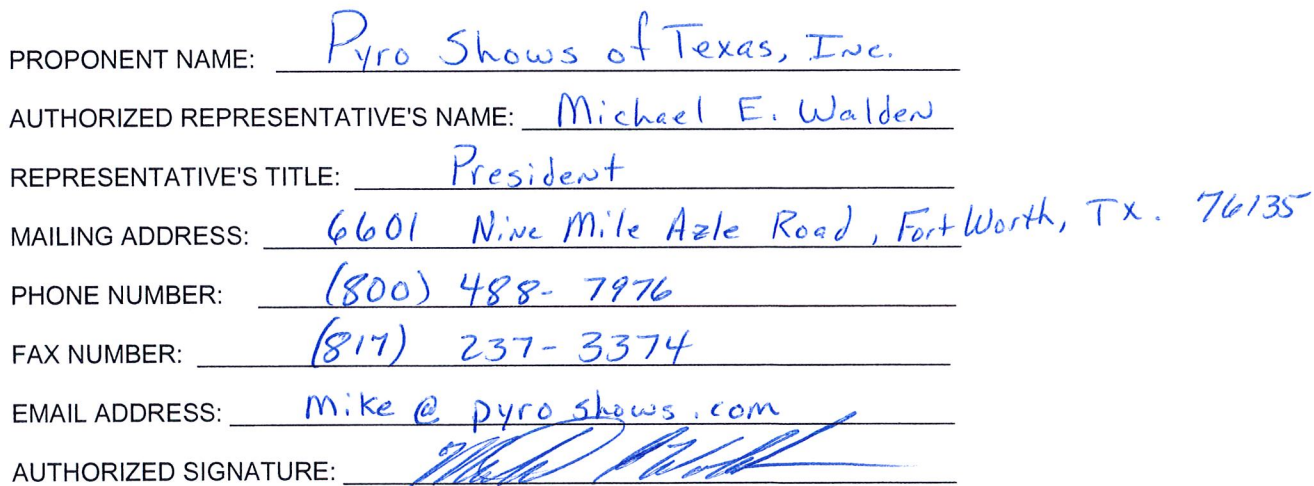 PROPONENT NAME: Pyro Shows of Texas, Inc.
AUTHORIZED REPRESENTATIVE'S NAME: Michael E. Walden
REPRESENTATIVE'S TITLE: President
MAILING ADDRESS: 6601 Nine Mile Azle Road, Fort Worth, Tx. 76135
PHONE NUMBER: (800) 488-7976
FAX NUMBER: (817) 237-3374
EMAIL ADDRESS: mike@pyroshows.com
AUTHORIZED SIGNATURE: